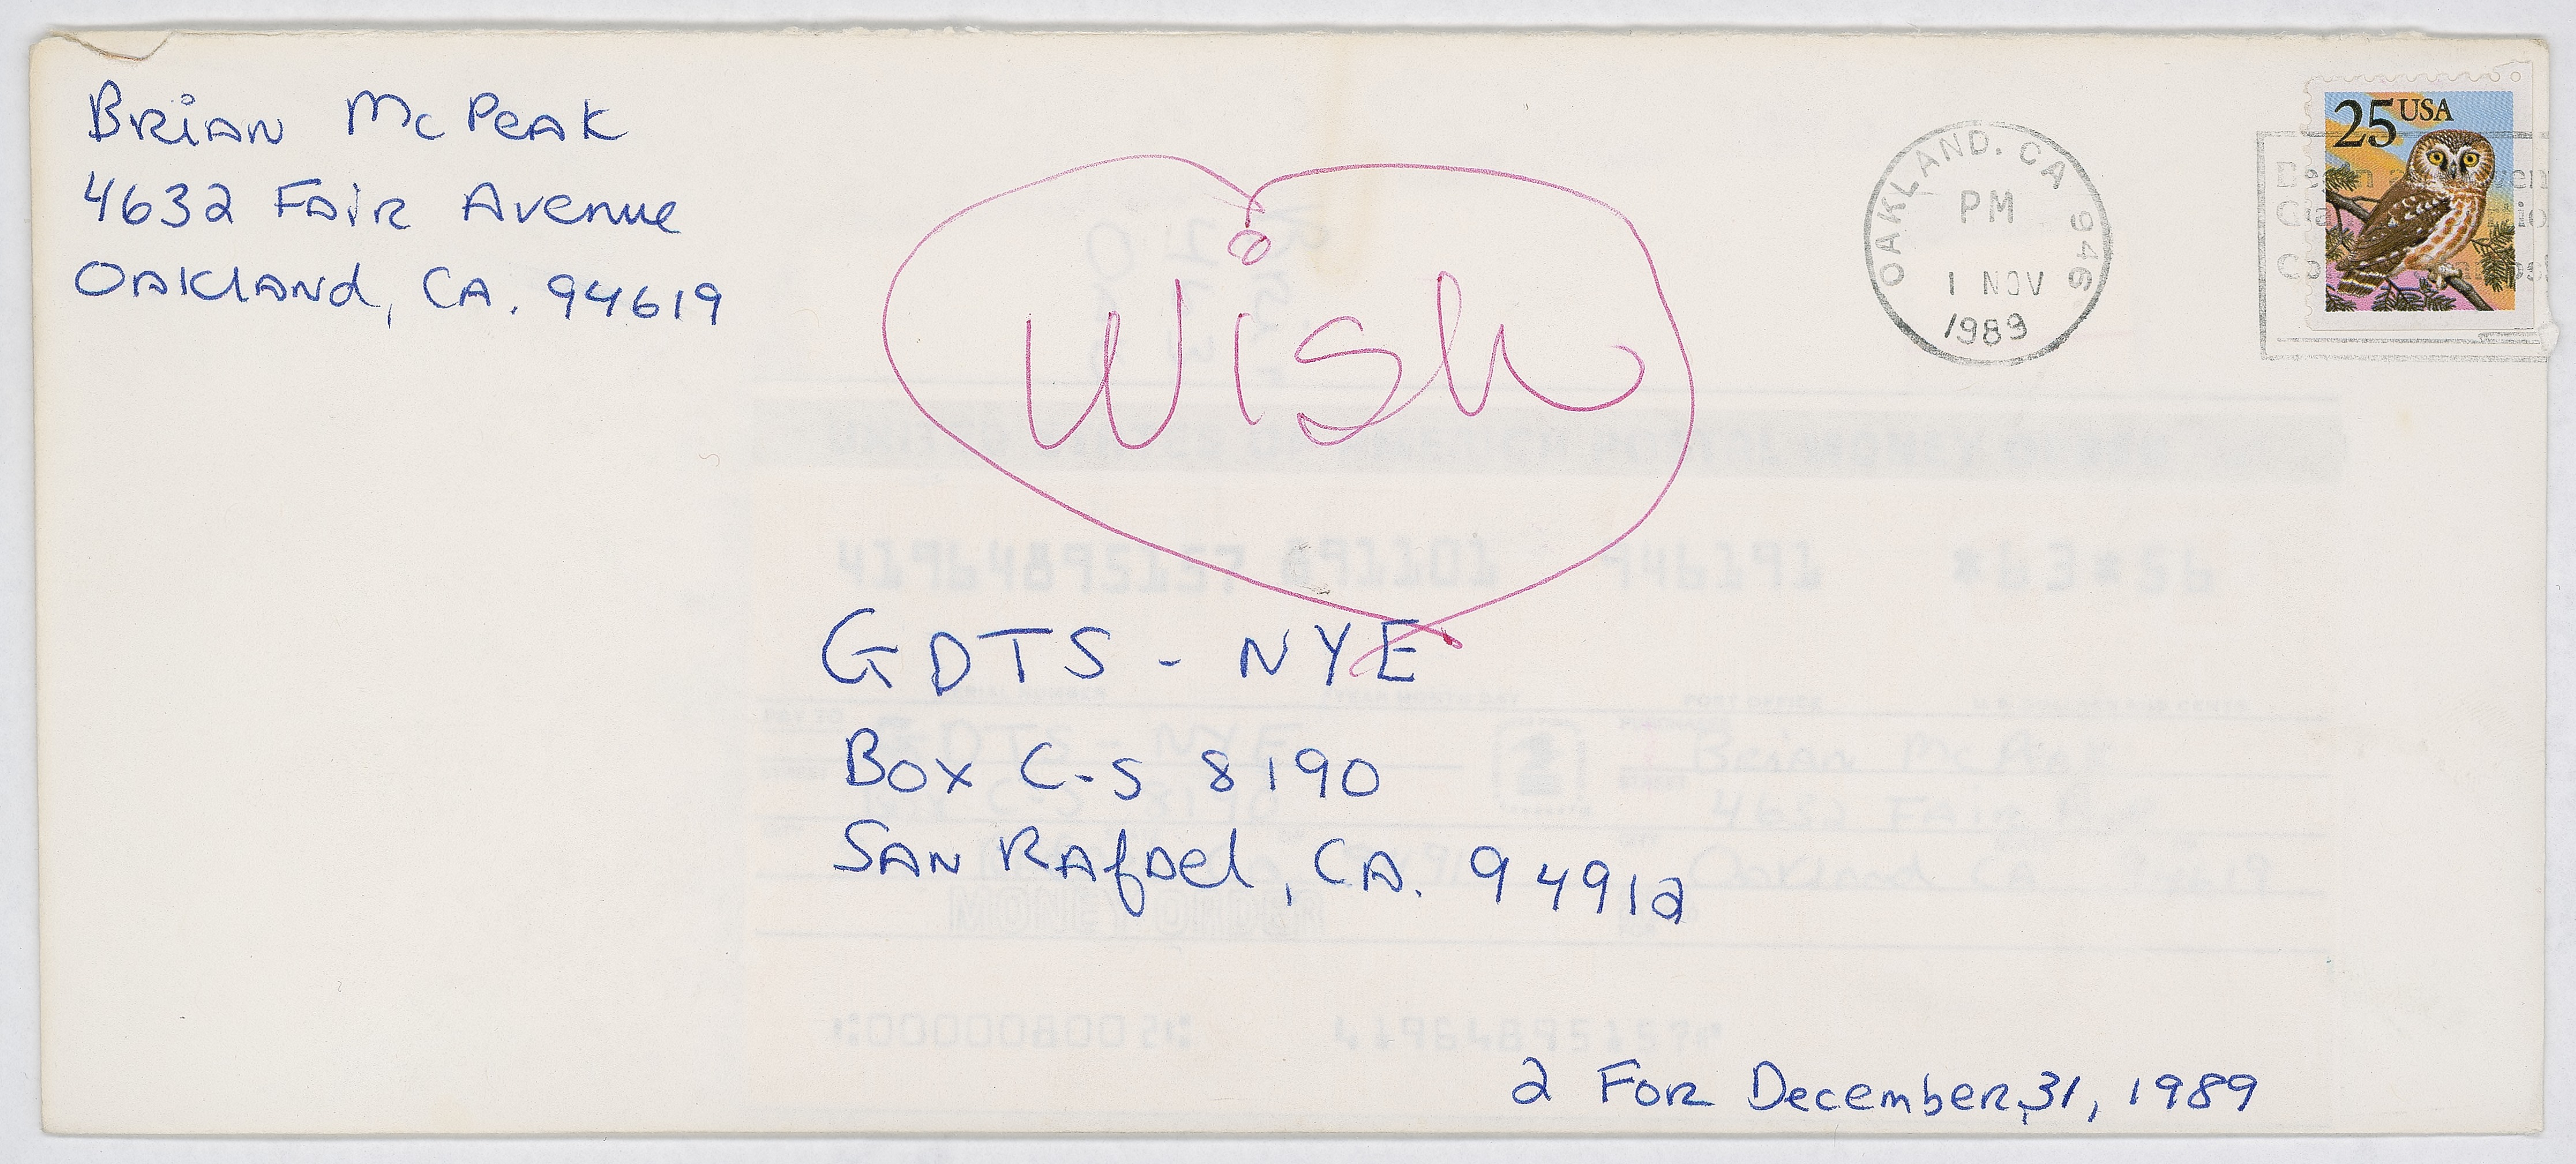 Brian McPeak
4632 Fair Avenue
Oakland, CA. 94619
Wish
OAKLAND. CA 946
PM
1 NOV
1989
25 USA
GDTS - NYE
Box C-S 8190
San Rafael, CA. 94912
2 For December, 31, 1989
41964895157 891101 946191
MONEY ORDER
41964895157